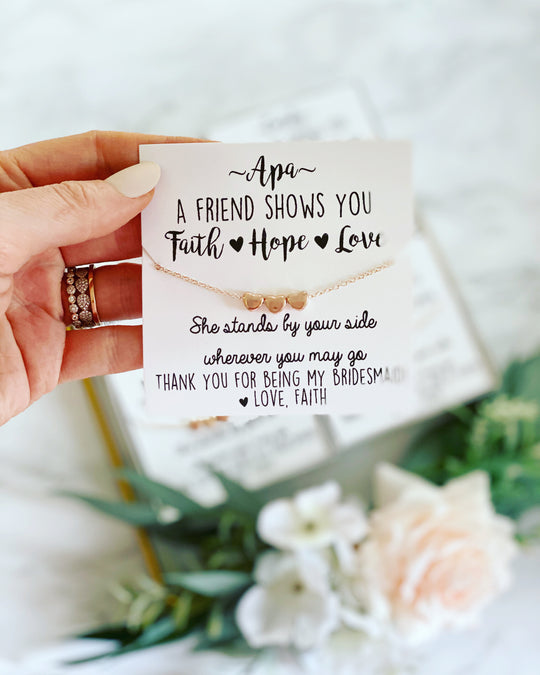 ~Apa~
A FRIEND SHOWS YOU
Faith ♥ Hope ♥ Love
She stands by your side
wherever you may go
THANK YOU FOR BEING MY BRIDESMAID
♥ LOVE, FAITH